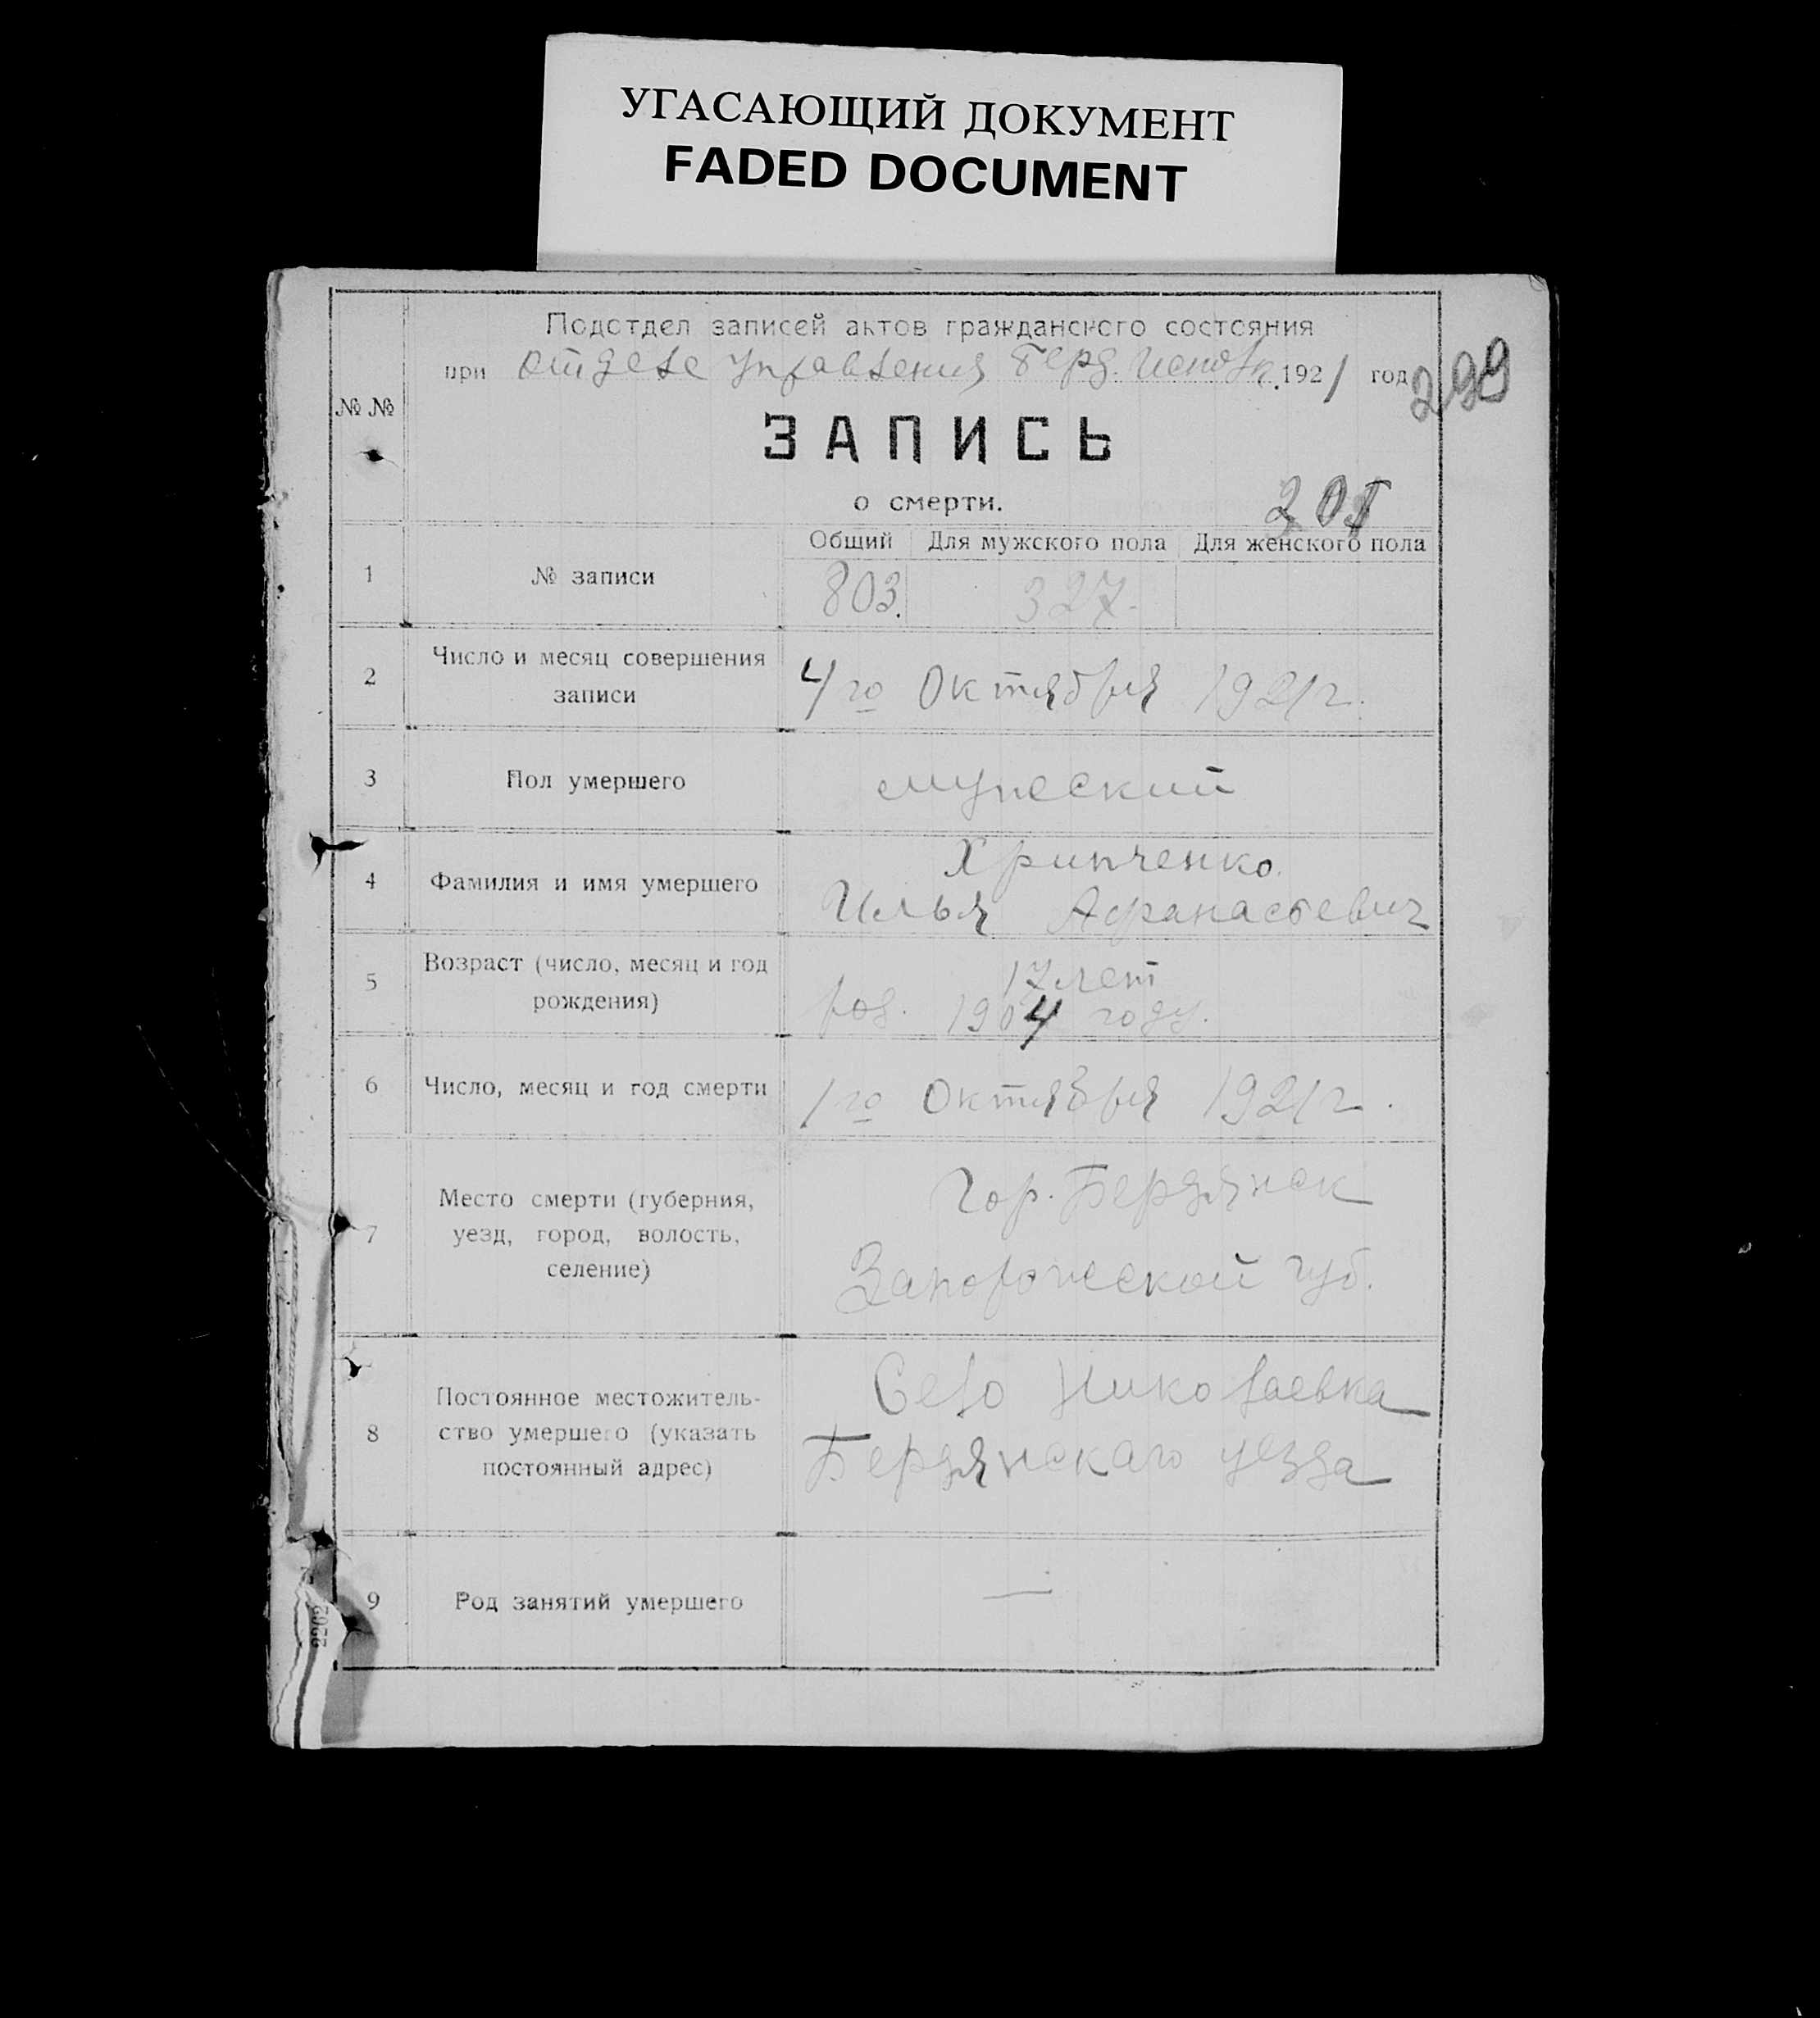 УГАСАЮЩИЙ ДОКУМЕНТ
FADED DOCUMENT
Подотдел записей актов гражданского состояния
при отделе Управления Берд. Исполк. 1921 год
299
№ №
ЗАПИСЬ
о смерти.
Общий Для мужского пола Для женского пола
1 № записи 803. 327.
2 Число и месяц совершения
записи
4го Октября 1921 г.
3 Пол умершего мужеский
4 Фамилия и имя умершего
Хрипченко.
Илья Афанасьевич
5 Возраст (число, месяц и год
рождения)
17 лет
род. 1904 году.
6 Число, месяц и год смерти 1го Октября 1921 г.
7 Место смерти (губерния,
уезд, город, волость,
селение)
Гор. Бердянск
Запорожеской губ.
8 Постоянное местожитель-
ство умершего (указать
постоянный адрес)
Село Николаевка
Бердянскаго уезда
9 Род занятий умершего —